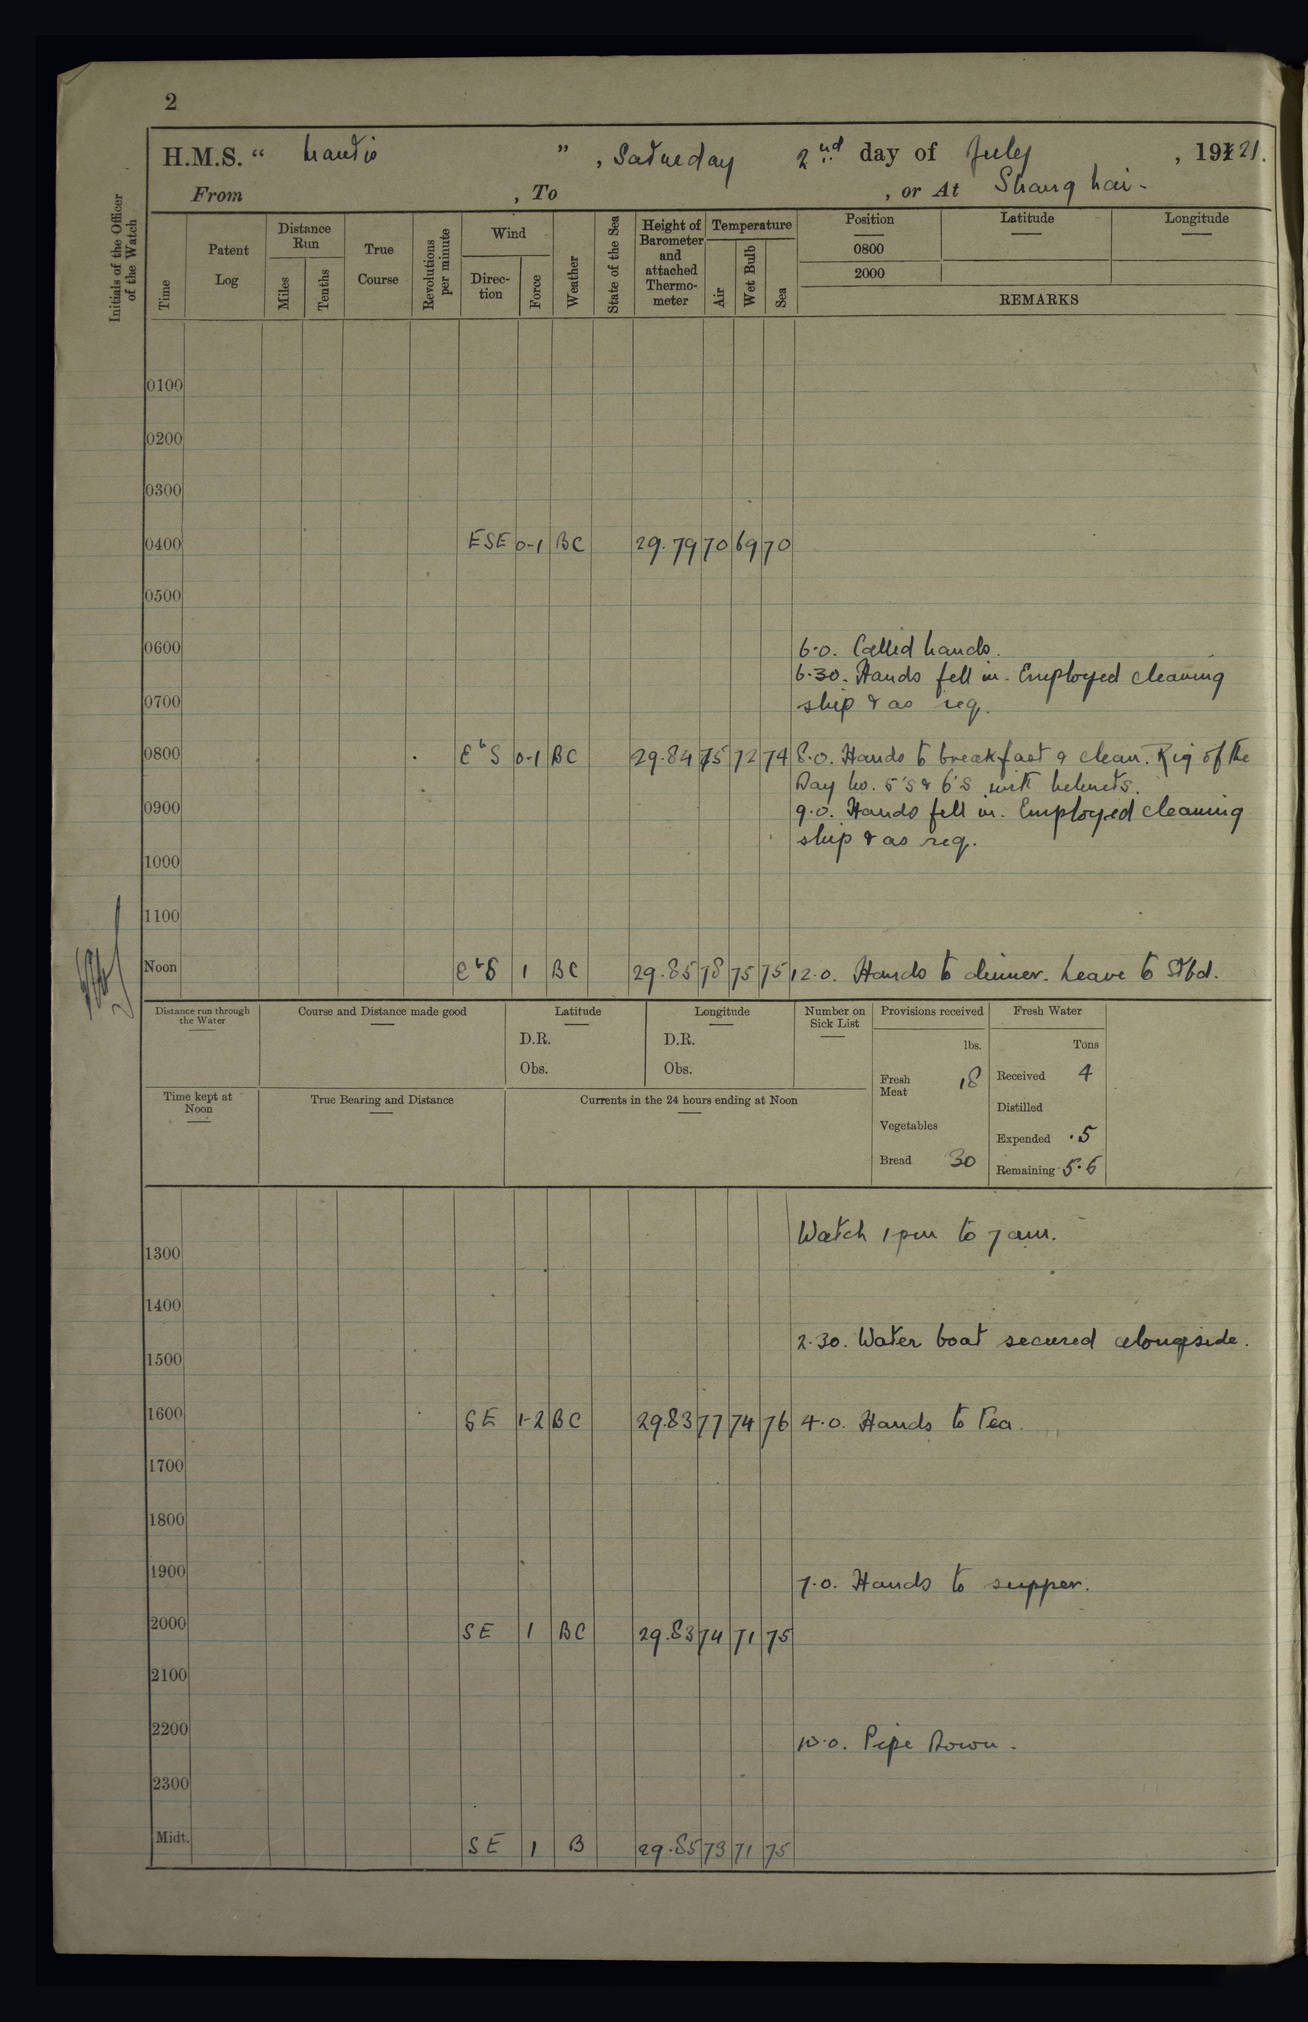 2
H.M.S. “ Mantis ” , Saturday 2nd day of July , 1921.
From , To , or At Shanghai -
Initials of the Officer of the Watch
Time
Patent Log
Distance Run
Miles
Tenths
True Course
Revolutions per minute
Wind
Direction
Force
Weather
State of the Sea
Height of Barometer and attached Thermometer
Temperature
Air
Wet Bulb
Sea
Position Latitude Longitude
0800
2000
REMARKS
0100
0200
0300
0400 ESE 0-1 BC 29.79 70 69 70
0500
0600 6.0. Called hands.
6.30. Hands fell in. Employed cleaning
0700 ship & as req.
0800 EbS 0-1 BC 29.84 75 72 74 8.0. Hands to breakfast & clean. Rig of the
Day No. 5's & 6's with helmets.
0900 9.0. Hands fell in. Employed cleaning
ship & as req.
1000
1100
Noon EbS 1 BC 29.85 78 75 75 12.0. Hands to dinner. Leave to Stbd.
Distance run through the Water
Course and Distance made good
Latitude
D.R.
Obs.
Longitude
D.R.
Obs.
Number on Sick List
Provisions received
lbs.
Fresh Meat 18
Vegetables
Bread 30
Fresh Water
Tons
Received 4
Distilled
Expended .5
Remaining 5.6
Time kept at Noon
True Bearing and Distance
Currents in the 24 hours ending at Noon
Watch 1 pm to 7 am.
1300
1400
2.30. Water boat secured alongside.
1500
1600 SE 1-2 BC 29.83 77 74 76 4.0. Hands to Tea.
1700
1800
1900 7.0. Hands to supper.
2000 SE 1 BC 29.83 74 71 75
2100
2200 10.0. Pipe Down.
2300
Midt. SE 1 B 29.85 73 71 75